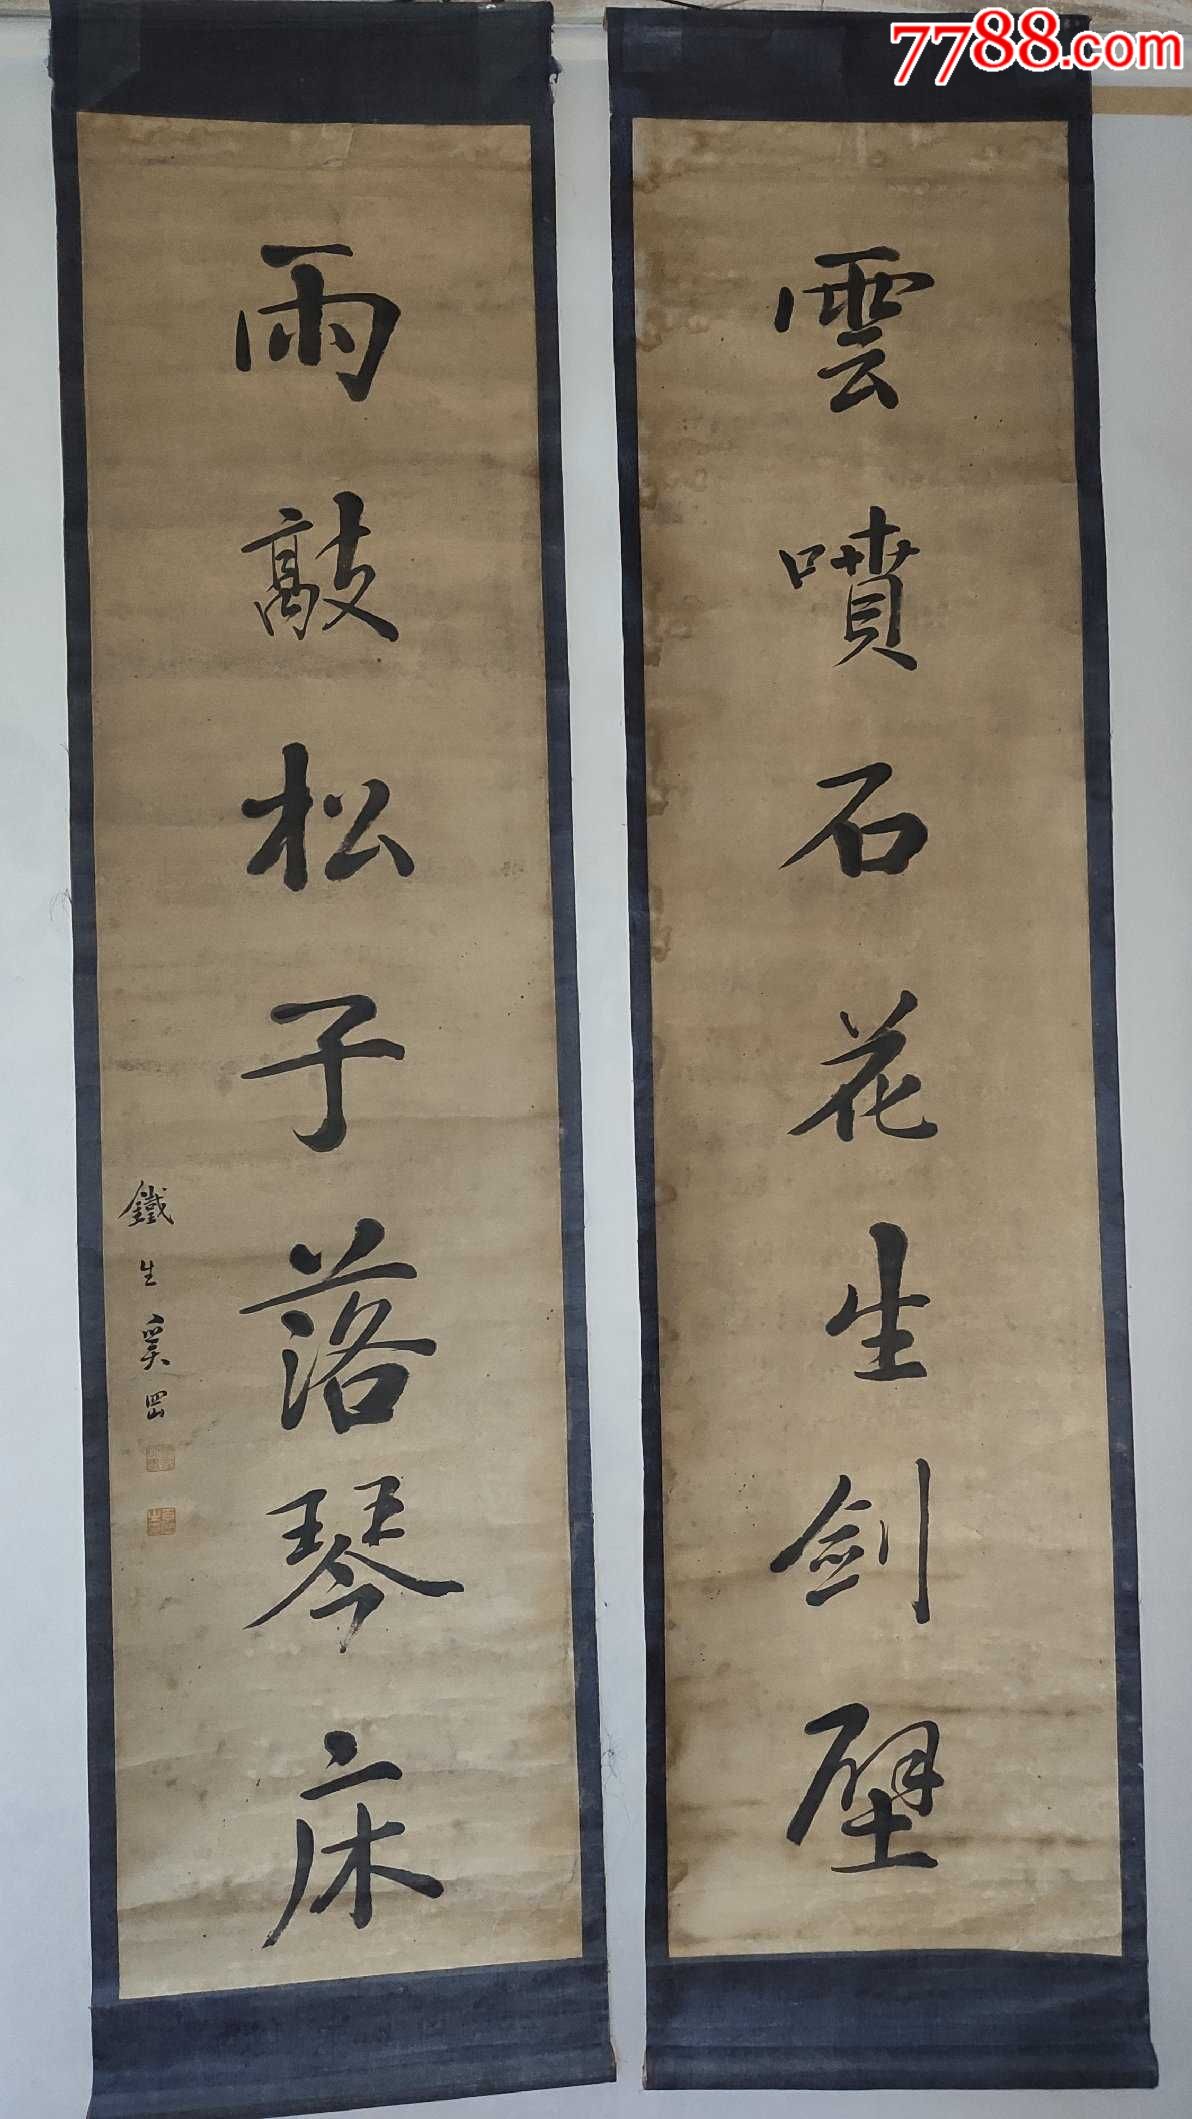 7788.com
雲噴石花生劍壁
雨敲松子落琴床
鐵生奚岡